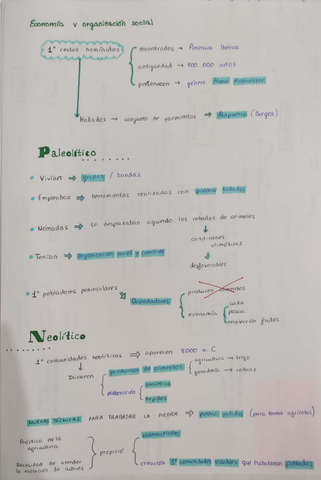 Economía y organización social
1º restos homínidos
encontrados → Península Ibérica
antigüedad → 900 000 años
pertenecen → género Homo Antecessor
Hallados → conjunto de yacimientos ⇒ Atapuerca (Burgos)
Paleolítico
Vivían ⇒ grupos / bandas
Empleaban ⇒ herramientas realizadas con piedra tallada
Nómadas → se desplazaban siguiendo los rebaños de animales
condiciones climáticas
desfavorables
Tenían ⇒ organización social y
1º pobladores peninsulares ⇒ Depredadores
producían alimentos
economía
caza
pesca
recolección frutos
Neolítico
1º comunidades neolíticas ⇒ aparecen 5000 a.C
Iniciaron
producción de alimentos
agricultura → trigo
ganadería → cabras
elaboración
cerámica
tejidos
NUEVAS TÉCNICAS PARA TRABAJAR LA PIEDRA ⇒ piedra pulida (para tareas agrícolas)
Práctica de la agricultura
Necesidad de atender la rotación de cultivos
propició
sedentarismo
creación 1º comunidades estables que habitaron poblados